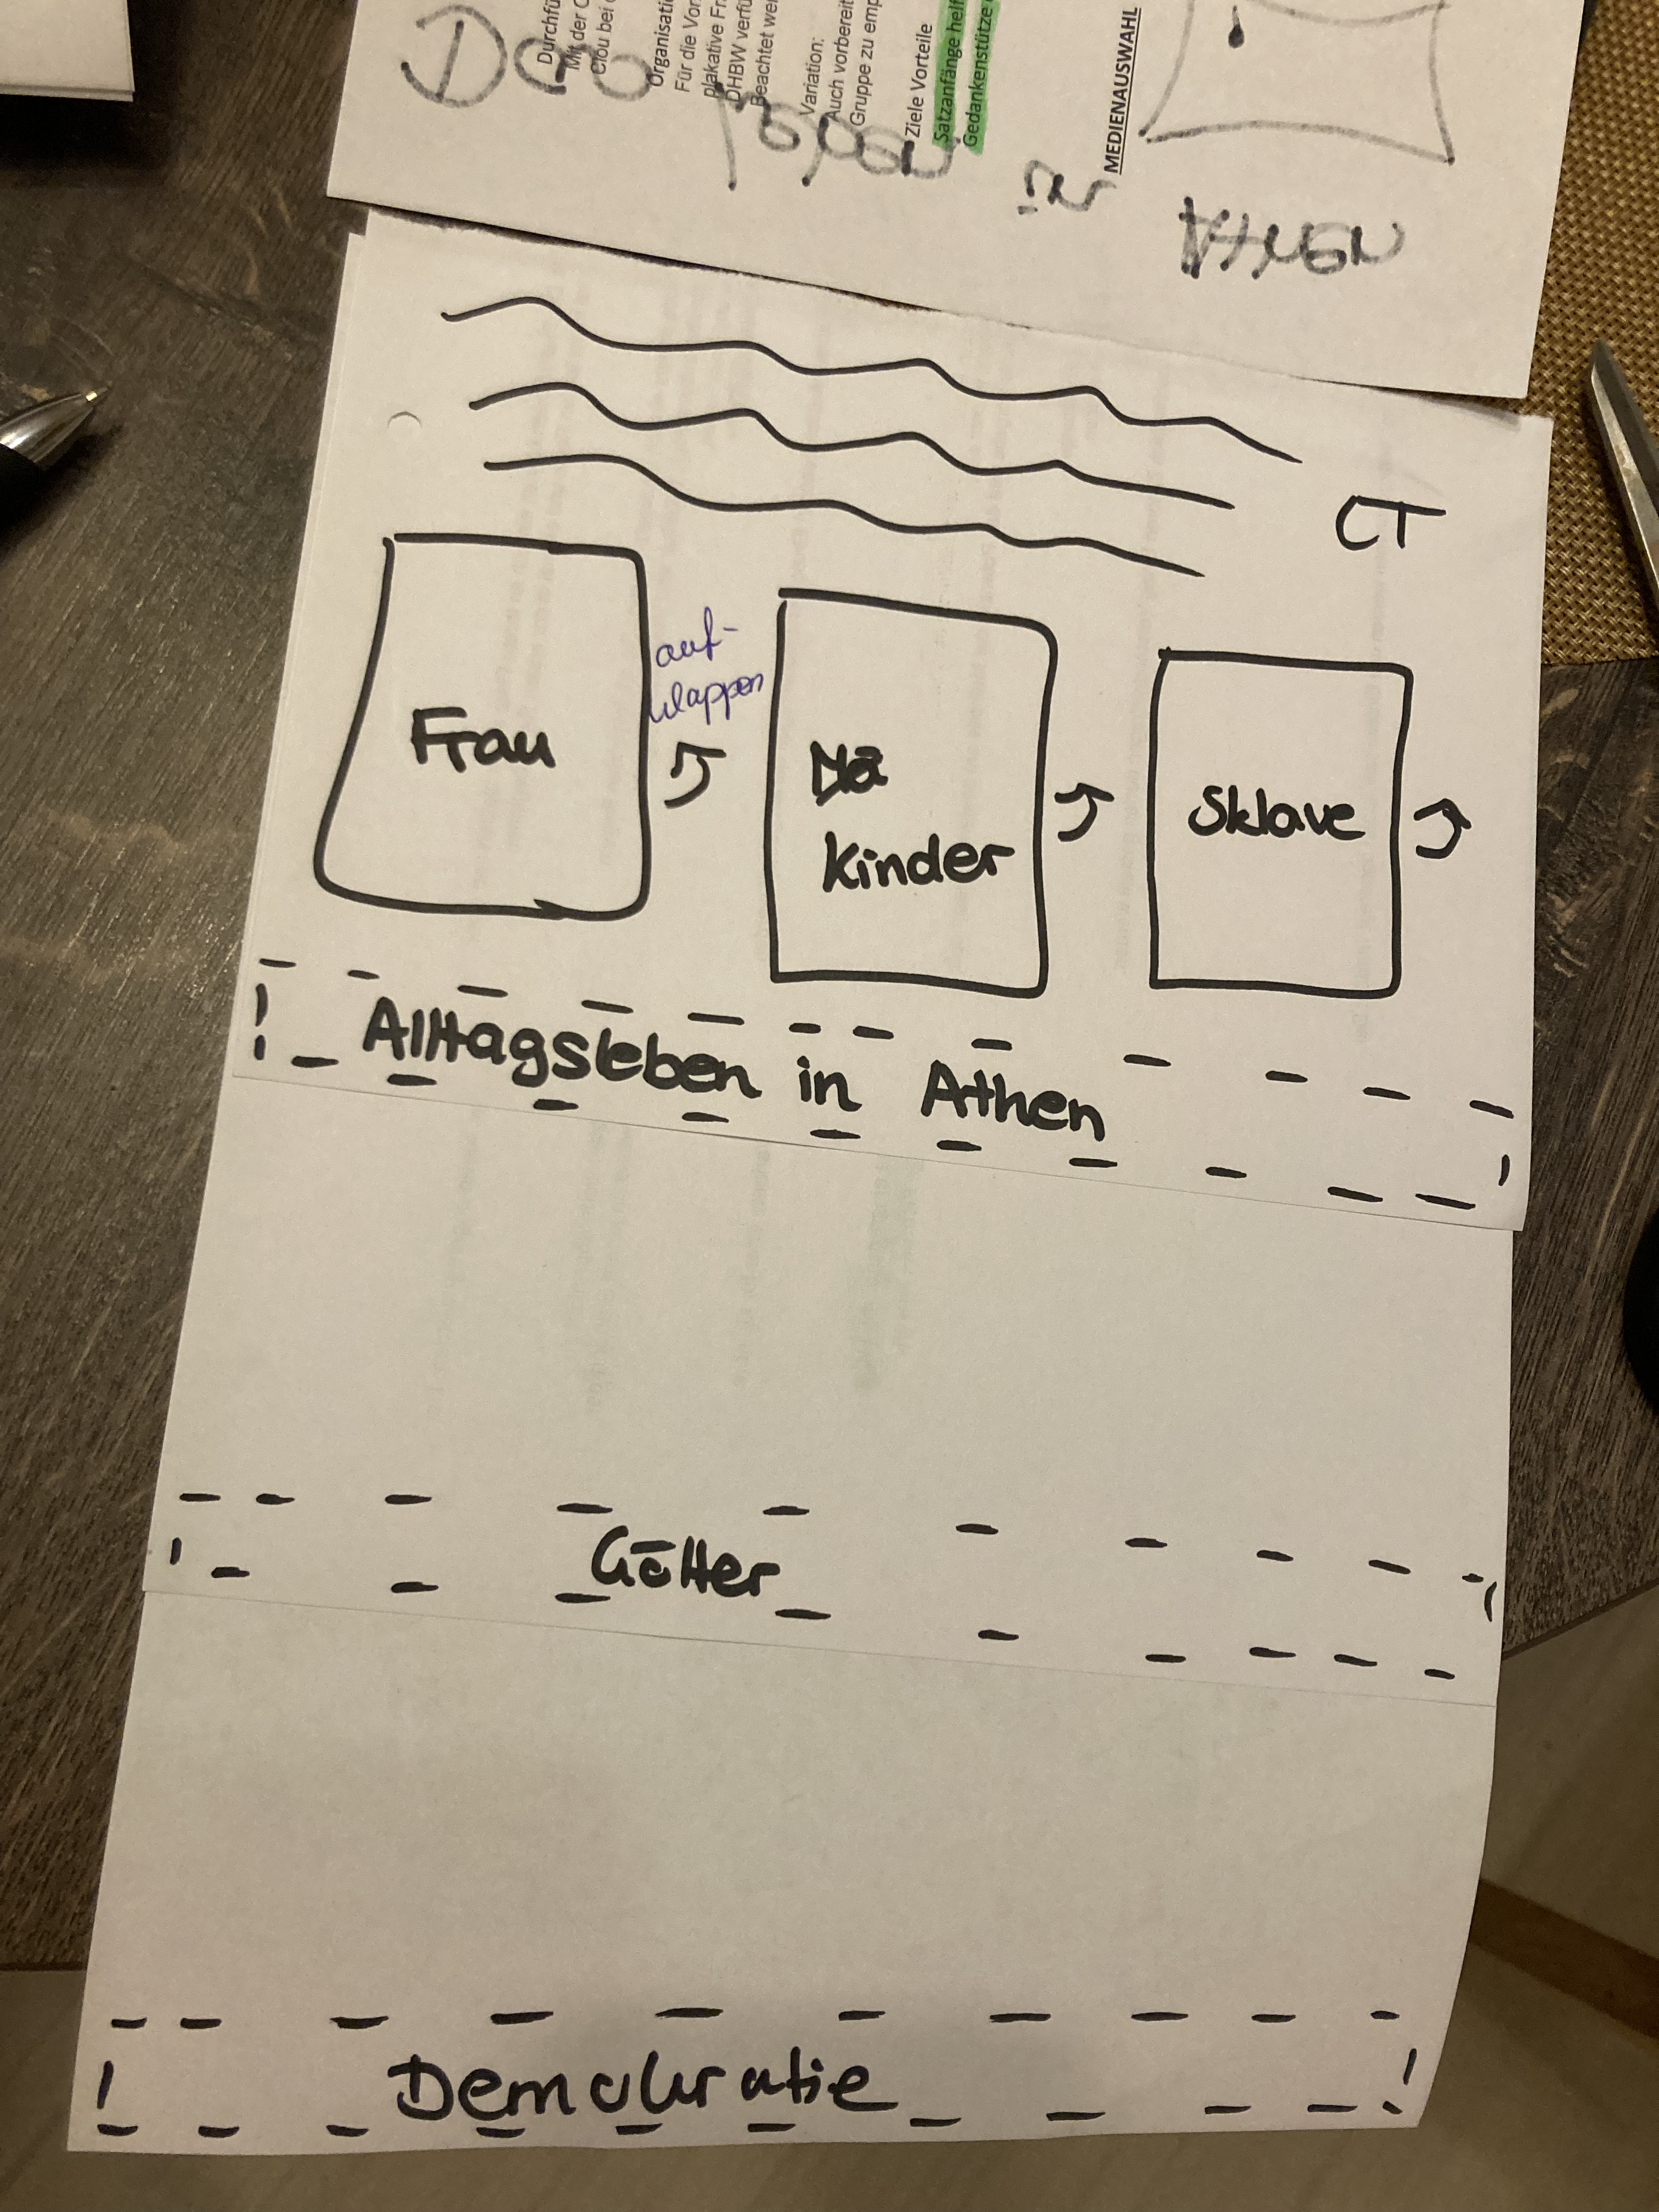 Durchfü
Mit der C
Clou bei
Organisati
Für die Vor
plakative Fr
DHBW verfü
Beachtet we
Variation:
Auch vorbereit
Gruppe zu emp
Ziele Vorteile
Satzanfänge helf
Gedankenstütze
MEDIENAUSWAHL
in
ATHEN
CT
Frau
auf-
klappen
Kinder
Sklave
Alltagsleben in Athen
Götter
Demokratie